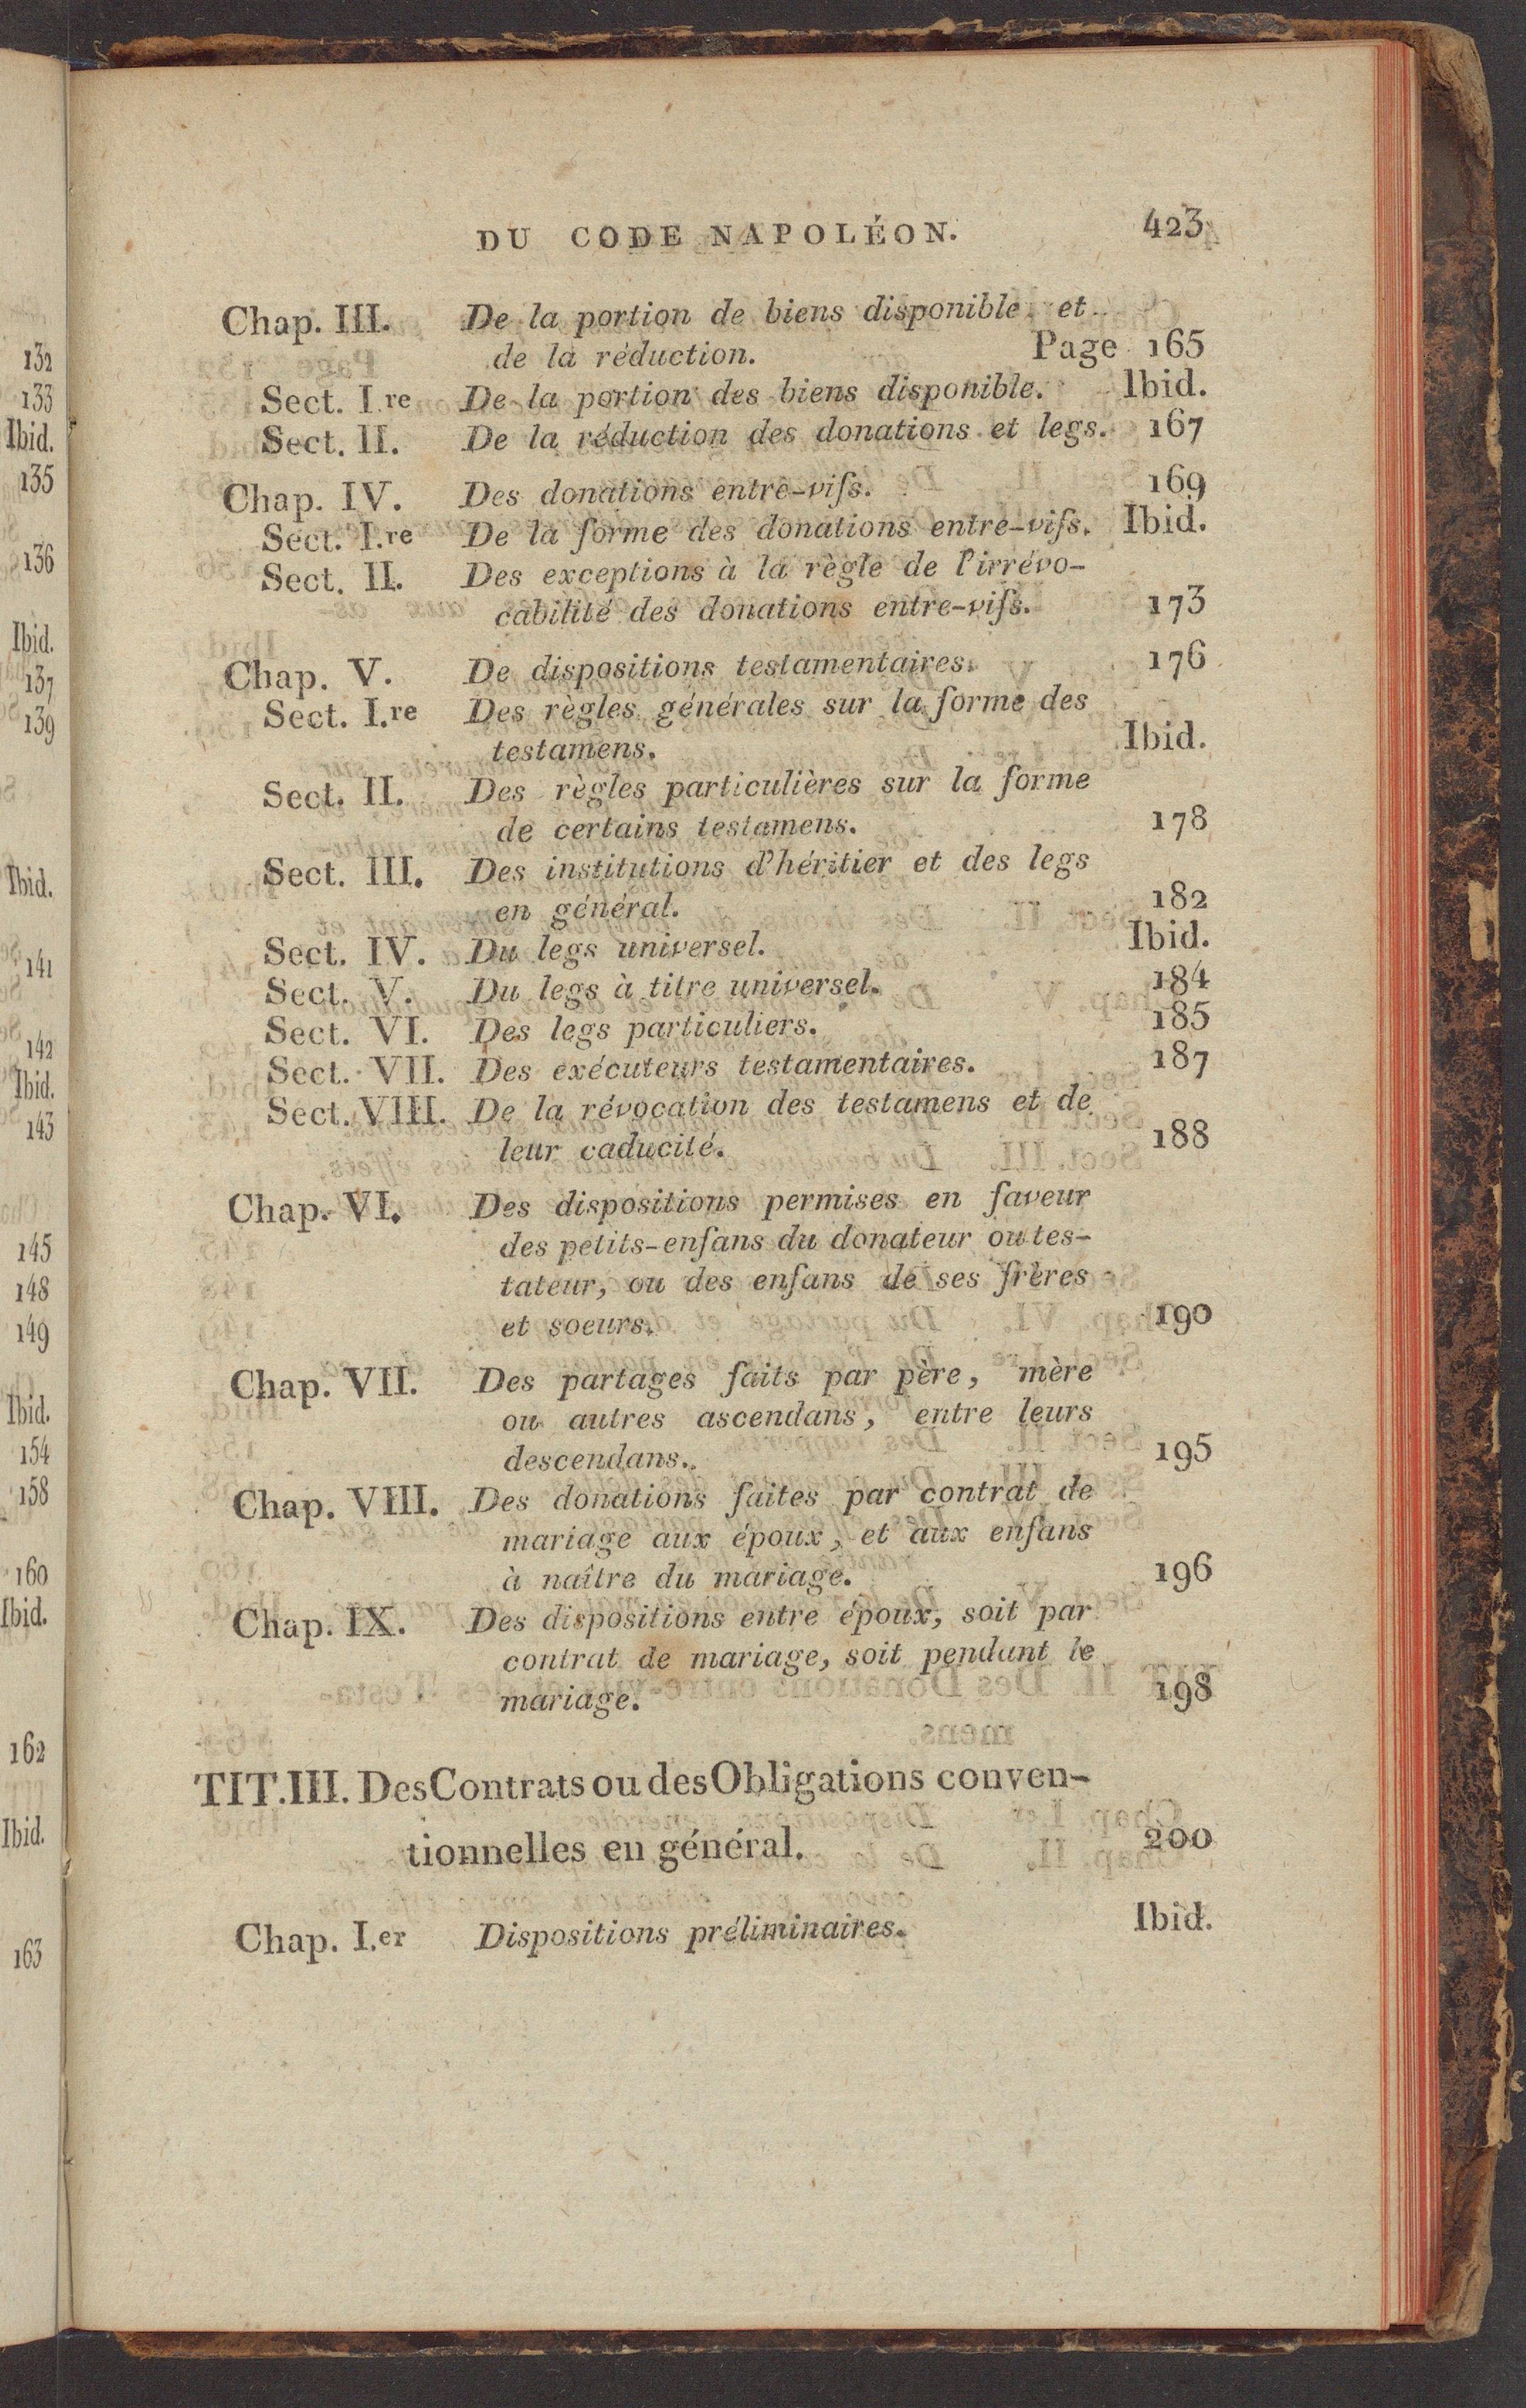 132
133
Ibid.
135
136
Ibid.
137
139
Ibid.
141
142
Ibid.
143
145
148
149
Ibid.
154
158
160
Ibid.
162
Ibid.
163
DU CODE NAPOLÉON. 423
Chap. III. De la portion de biens disponible et
de la réduction. Page 165
Sect. I.re De la portion des biens disponible. Ibid.
Sect. II. De la réduction des donations et legs. 167
Chap. IV. Des donations entre-vifs. 169
Sect. I.re De la forme des donations entre-vifs. Ibid.
Sect. II. Des exceptions à la règle de l'irrévo-
cabilité des donations entre-vifs. 173
Chap. V. De dispositions testamentaires. 176
Sect. I.re Des règles générales sur la forme des
testamens. Ibid.
Sect. II. Des règles particulières sur la forme
de certains testamens. 178
Sect. III. Des institutions d'héritier et des legs
en général. 182
Sect. IV. Du legs universel. Ibid.
Sect. V. Du legs à titre universel. 184
Sect. VI. Des legs particuliers. 185
Sect. VII. Des exécuteurs testamentaires. 187
Sect. VIII. De la révocation des testamens et de
leur caducité. 188
Chap. VI. Des dispositions permises en faveur
des petits-enfans du donateur ou tes-
tateur, ou des enfans de ses frères
et soeurs. 190
Chap. VII. Des partages faits par père, mère
ou autres ascendans, entre leurs
descendans. 195
Chap. VIII. Des donations faites par contrat de
mariage aux époux, et aux enfans
à naître du mariage. 196
Chap. IX. Des dispositions entre époux, soit par
contrat de mariage, soit pendant le
mariage. 198
TIT. III. Des Contrats ou des Obligations conven-
tionnelles en général. 200
Chap. I.er Dispositions préliminaires. Ibid.